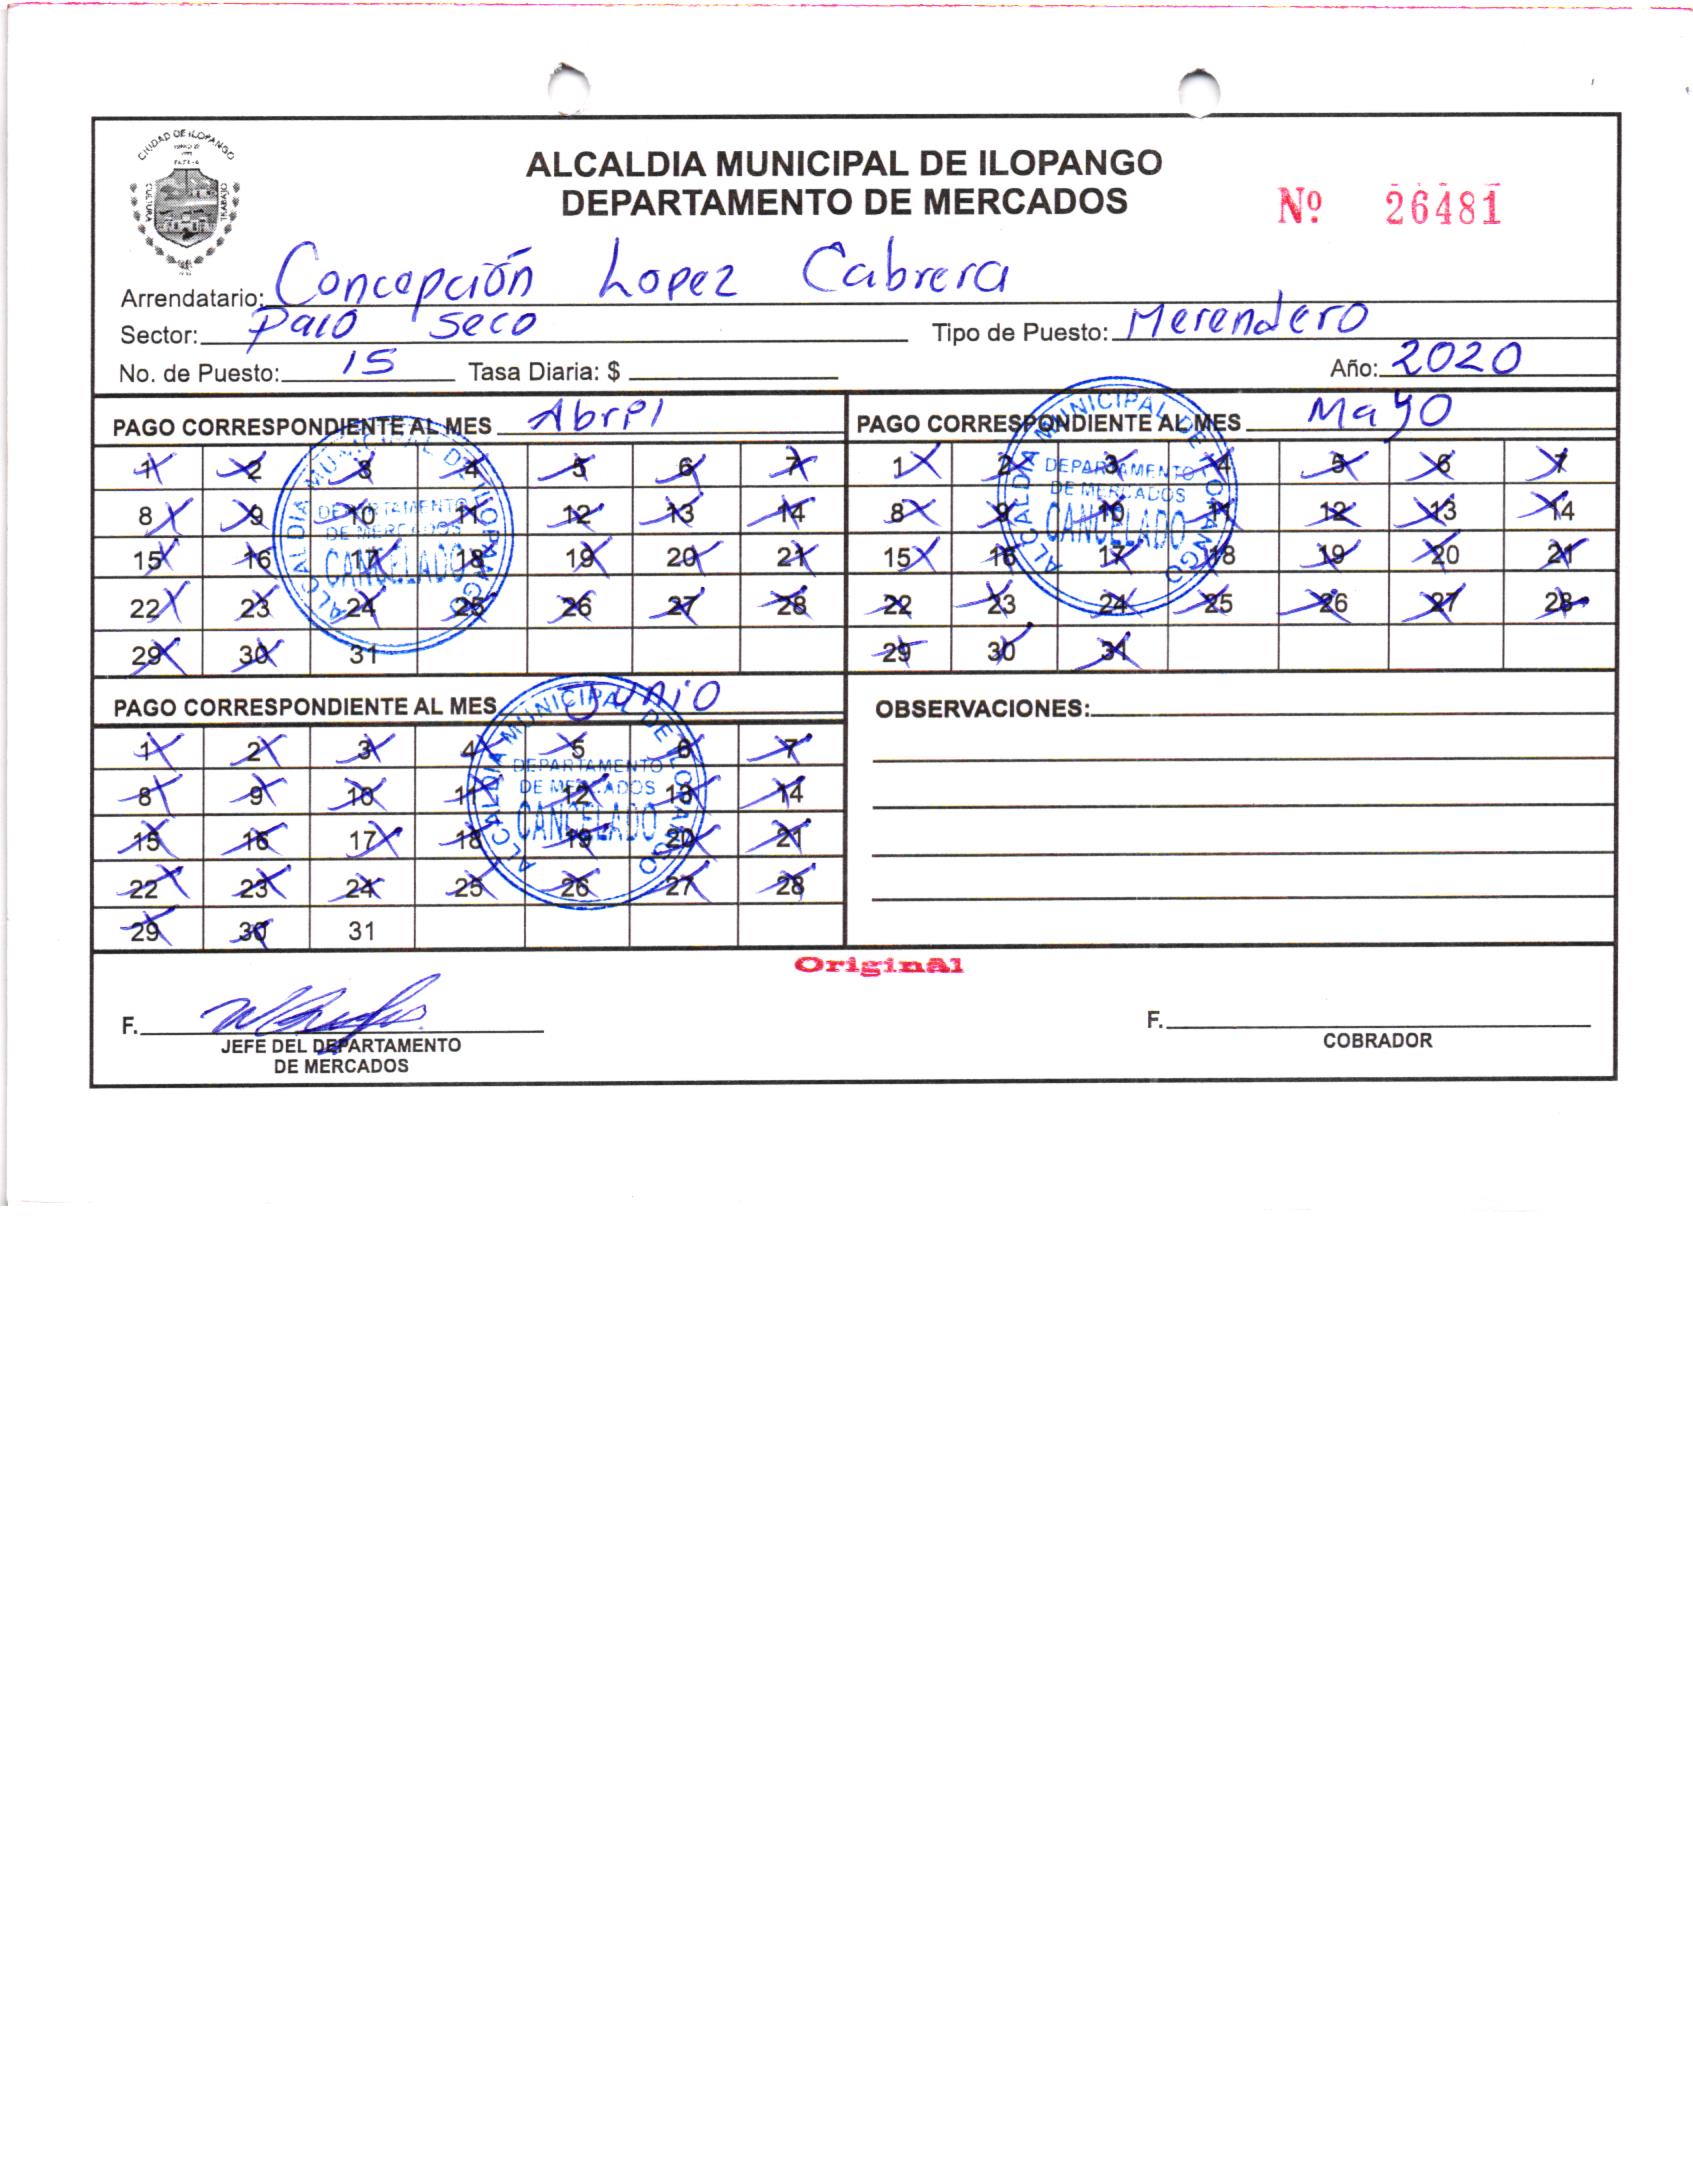 CIUDAD DE ILOPANGO
CULTURA
TRABAJO
ALCALDIA MUNICIPAL DE ILOPANGO
DEPARTAMENTO DE MERCADOS
Nº 26481
Arrendatario: Concepción Lopez Cabrera
Sector: Palo seco Tipo de Puesto: Merendero
No. de Puesto: 15 Tasa Diaria: $ Año: 2020
PAGO CORRESPONDIENTE AL MES Abril
1 2 3 4 5 6 7
8 9 10 11 12 13 14
15 16 17 18 19 20 21
22 23 24 25 26 27 28
29 30 31
ALCALDIA MUNICIPAL DE ILOPANGO
DEPARTAMENTO
DE MERCADOS
CANCELADO
PAGO CORRESPONDIENTE AL MES Mayo
1 2 3 4 5 6 7
8 9 10 11 12 13 14
15 16 17 18 19 20 21
22 23 24 25 26 27 28
29 30 31
ALCALDIA MUNICIPAL DE ILOPANGO
DEPARTAMENTO
DE MERCADOS
CANCELADO
PAGO CORRESPONDIENTE AL MES Junio
1 2 3 4 5 6 7
8 9 10 11 12 13 14
15 16 17 18 19 20 21
22 23 24 25 26 27 28
29 30 31
ALCALDIA MUNICIPAL DE ILOPANGO
DEPARTAMENTO
DE MERCADOS
CANCELADO
OBSERVACIONES:
Original
F.
JEFE DEL DEPARTAMENTO
DE MERCADOS
F.
COBRADOR